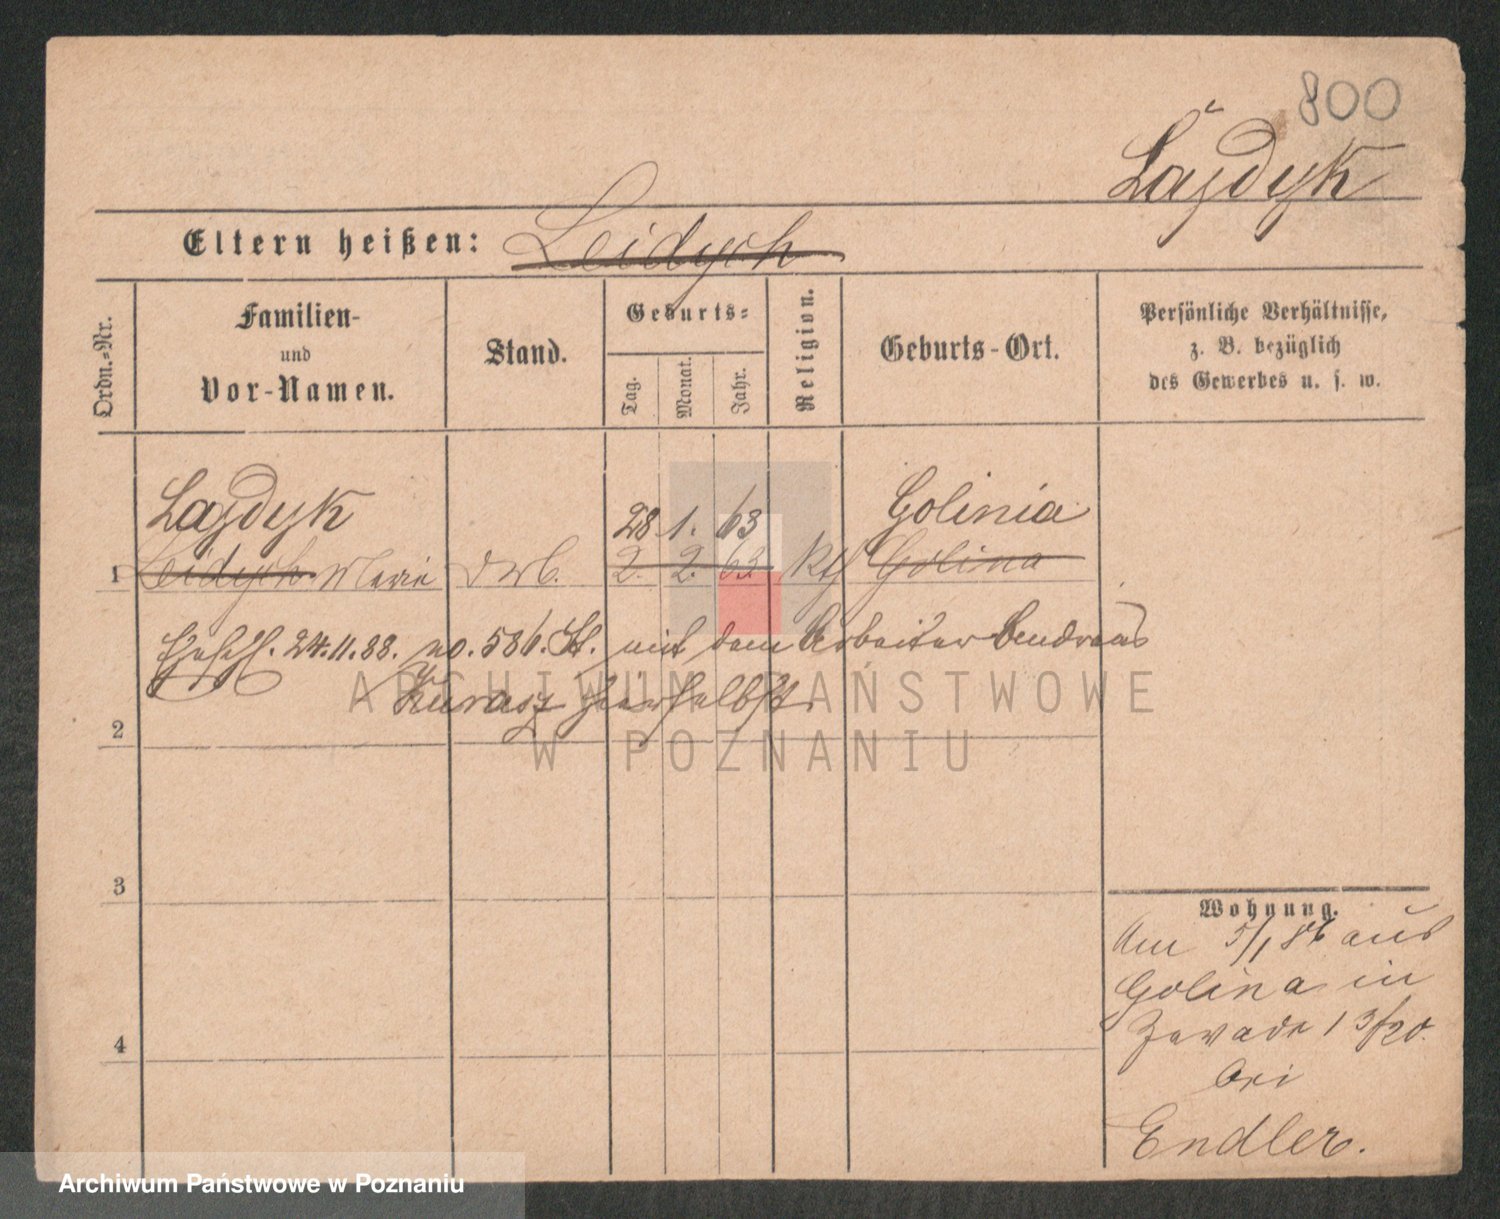 800
Lajdyk
Eltern heißen: Leidych
Ordn.=Nr.
Familien-
und
Vor-Namen.
Stand.
Geburts=
Tag.
Monat.
Jahr.
Religion.
Geburts-Ort.
Persönliche Verhältnisse,
z. B. bezüglich
des Gewerbes u. s. w.
Lajdyk 28 1. 63 Golinia
1 Leidych Marie 2. 2. 63 Kth Golina
24.11.88. no. 586. St. mit dem Arbeiter Andreas
Kurasz hierselbst.
2
3
4
Wohnung.
Am 5/1 86 aus
Golina in
Zawade 13/20.
bei
Endler.
ARCHIWUM PAŃSTWOWE
W POZNANIU
Archiwum Państwowe w Poznaniu